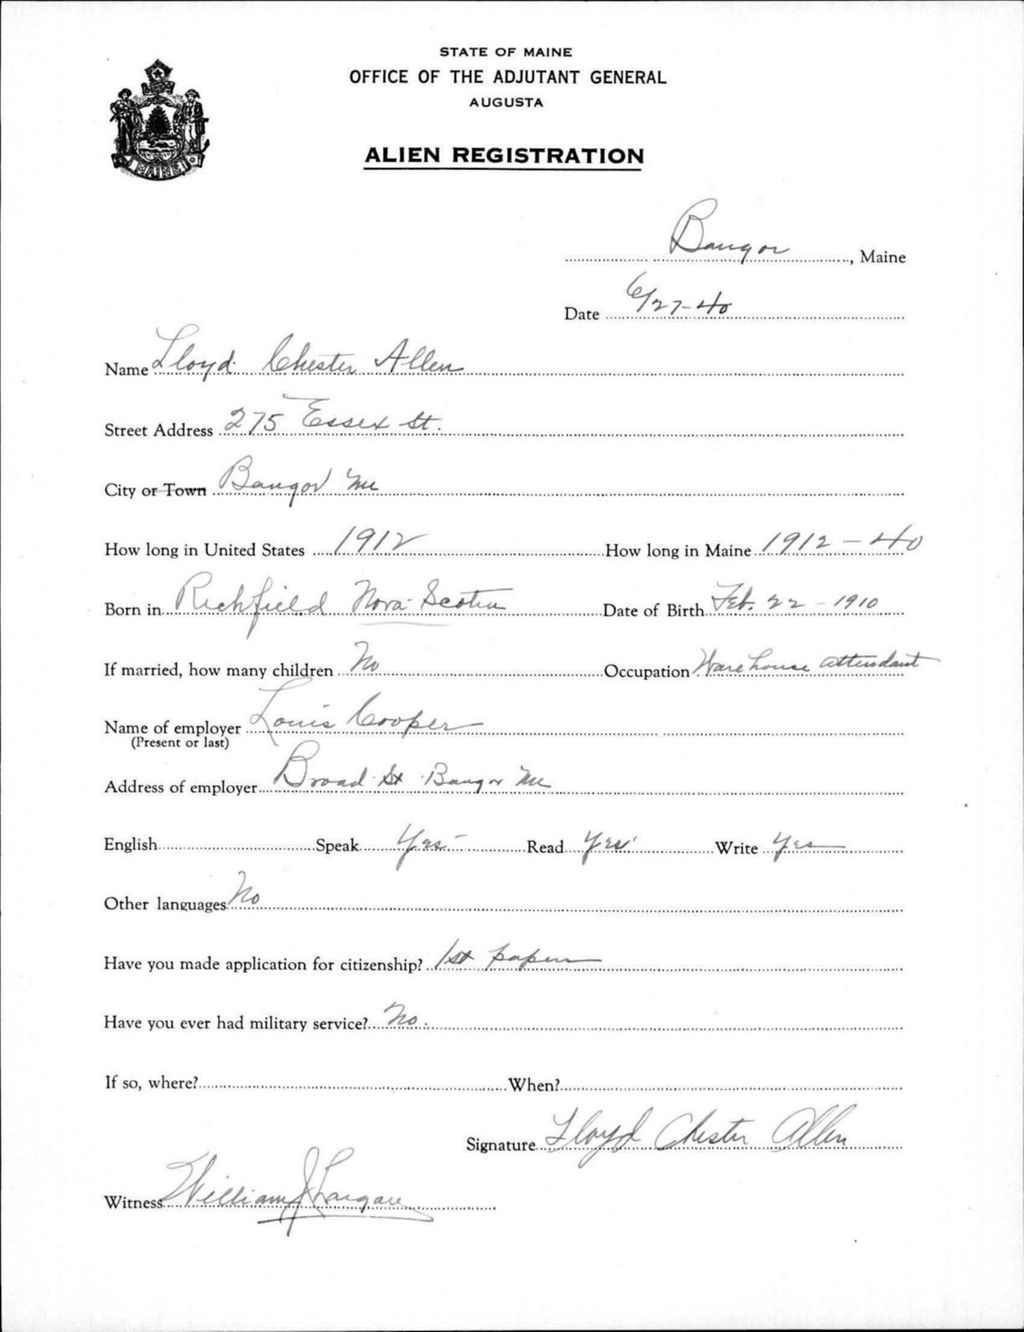 STATE OF MAINE
OFFICE OF THE ADJUTANT GENERAL
AUGUSTA
ALIEN REGISTRATION
MAINE
Bangor, Maine
Date 6/27-40
Name Lloyd Chester Allen
Street Address 275 Essex St.
City or Town Bangor Me
How long in United States 1912 How long in Maine 1912-40
Born in Richfield Nova Scotia Date of Birth Feb. 22-1910
If married, how many children No Occupation Warehouse attendant
Name of employer Louis Cooper
(Present or last)
Address of employer Broad St Bangor Me
English Speak Yes Read Yes Write Yes
Other languages No
Have you made application for citizenship? 1st papers
Have you ever had military service? No.
If so, where? When?
Signature Lloyd Chester Allen
Witness William J